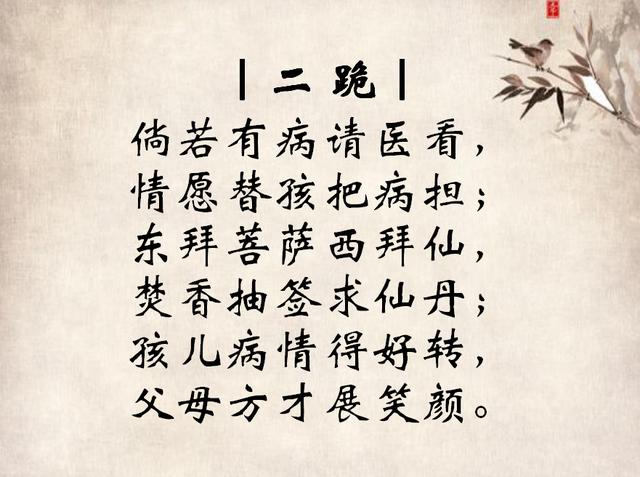 |二跪|
倘若有病请医看，
情愿替孩把病担；
东拜菩萨西拜仙，
焚香抽签求仙丹；
孩儿病情得好转，
父母方才展笑颜。